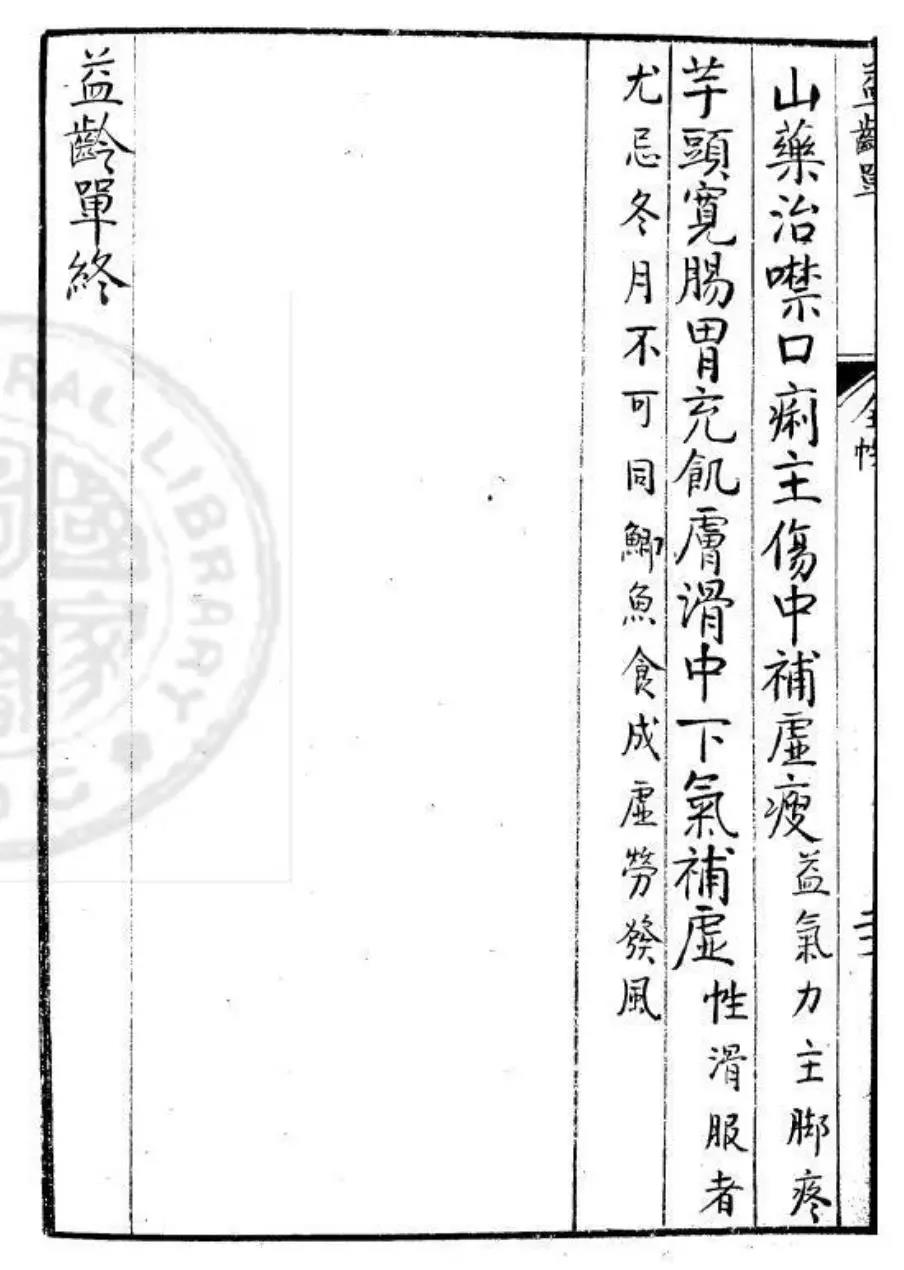 益齡單
二
山藥治噤口痢主傷中補虛瘦益氣力主脚疼
芋頭寬腸胃充飢膚滑中下氣補虛性滑服者
尤忌冬月不可同鯽魚食成虛勞發風
益齡單終
RAL LIBRARY